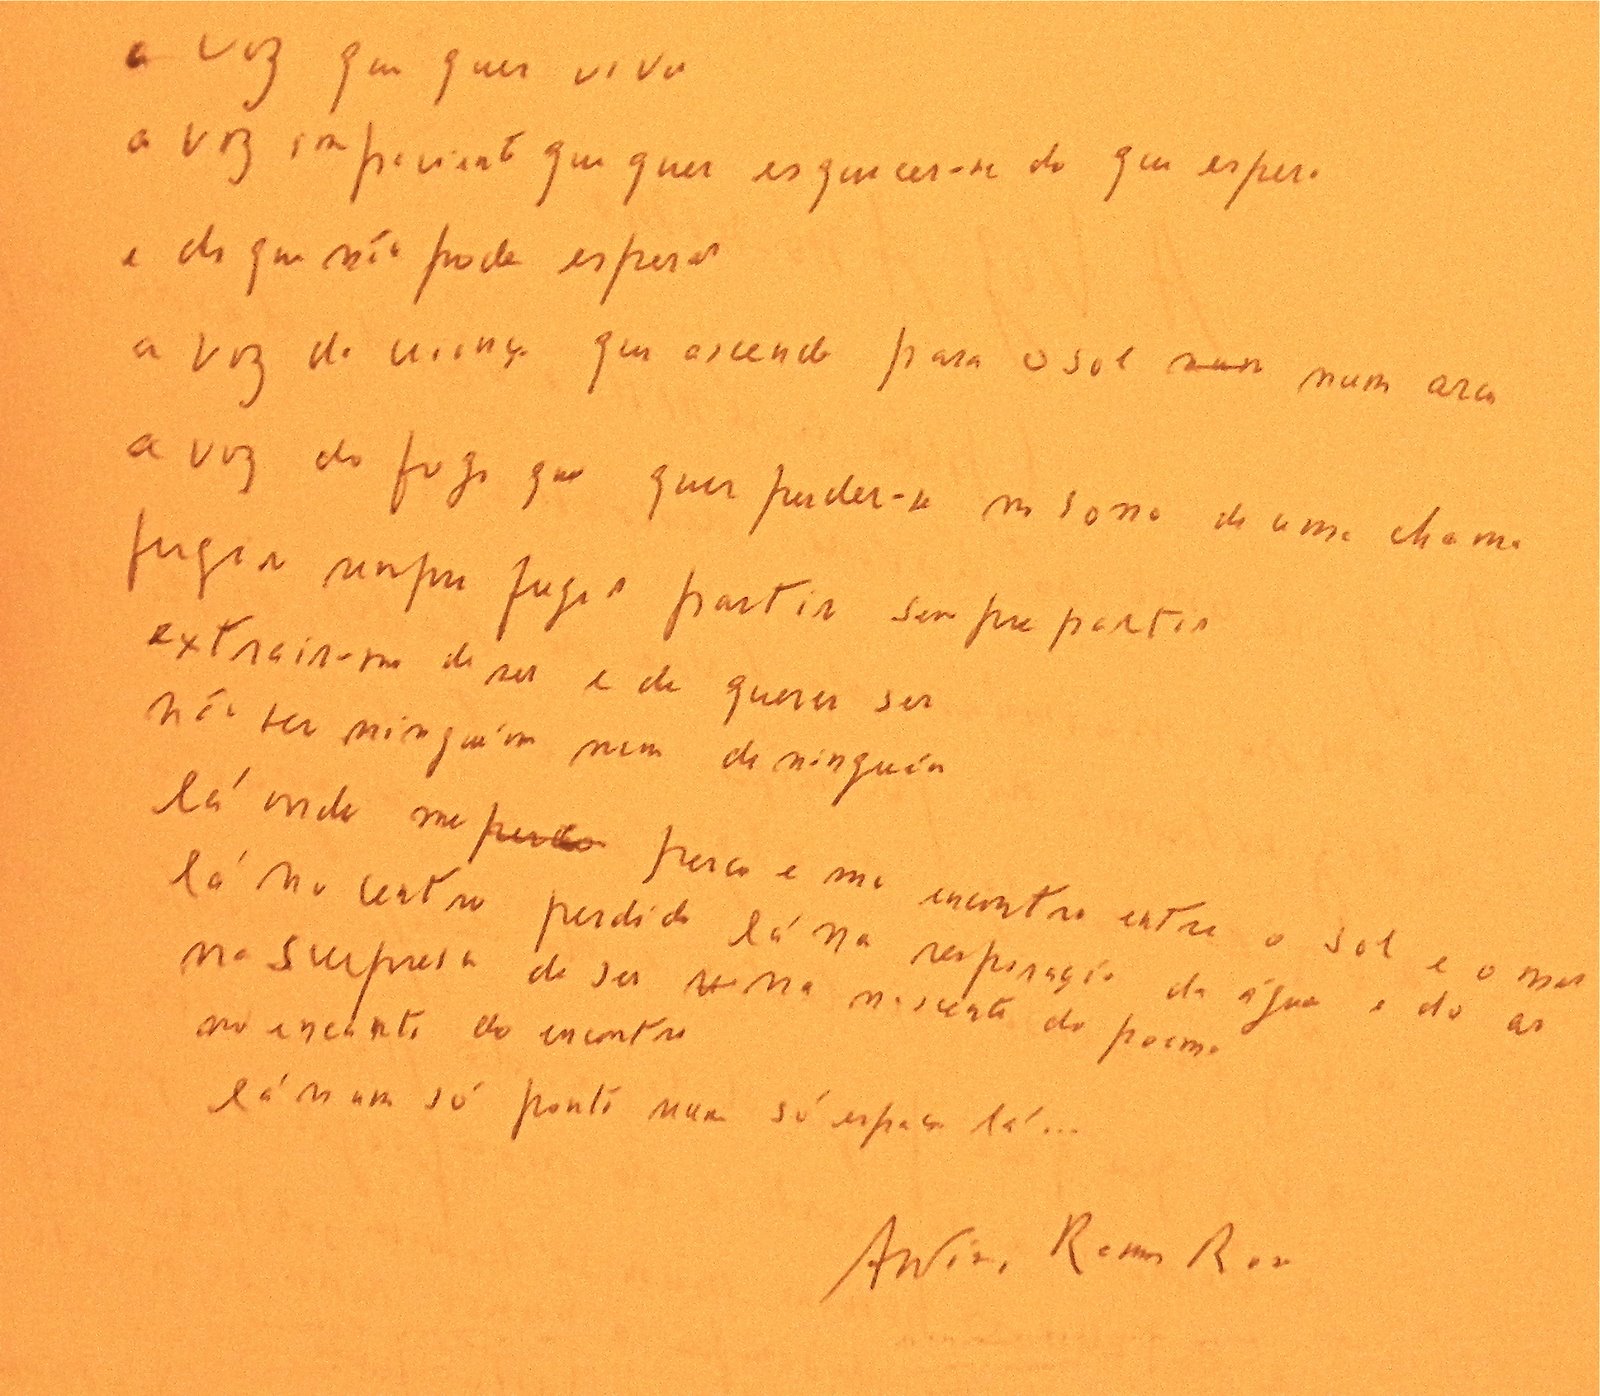 a voz que quer viver
a voz impaciente que quer esquecer-se do que espera
e do que não pode esperar
a voz da criança que ascende para o sol num num arco
a voz do fogo que quer perder-se no sono de uma chama
fugir sempre fugir partir sempre partir
extrair-me de ser e de querer ser
não ser ninguém nem de ninguém
lá onde me perdo perco e me encontro entre o sol e o mar
lá no centro perdido lá na respiração da água e do ar
na surpresa de ser na nascente do poema
no encanto do encontro
lá num só ponto num só espaço lá...
António Ramos Rosa